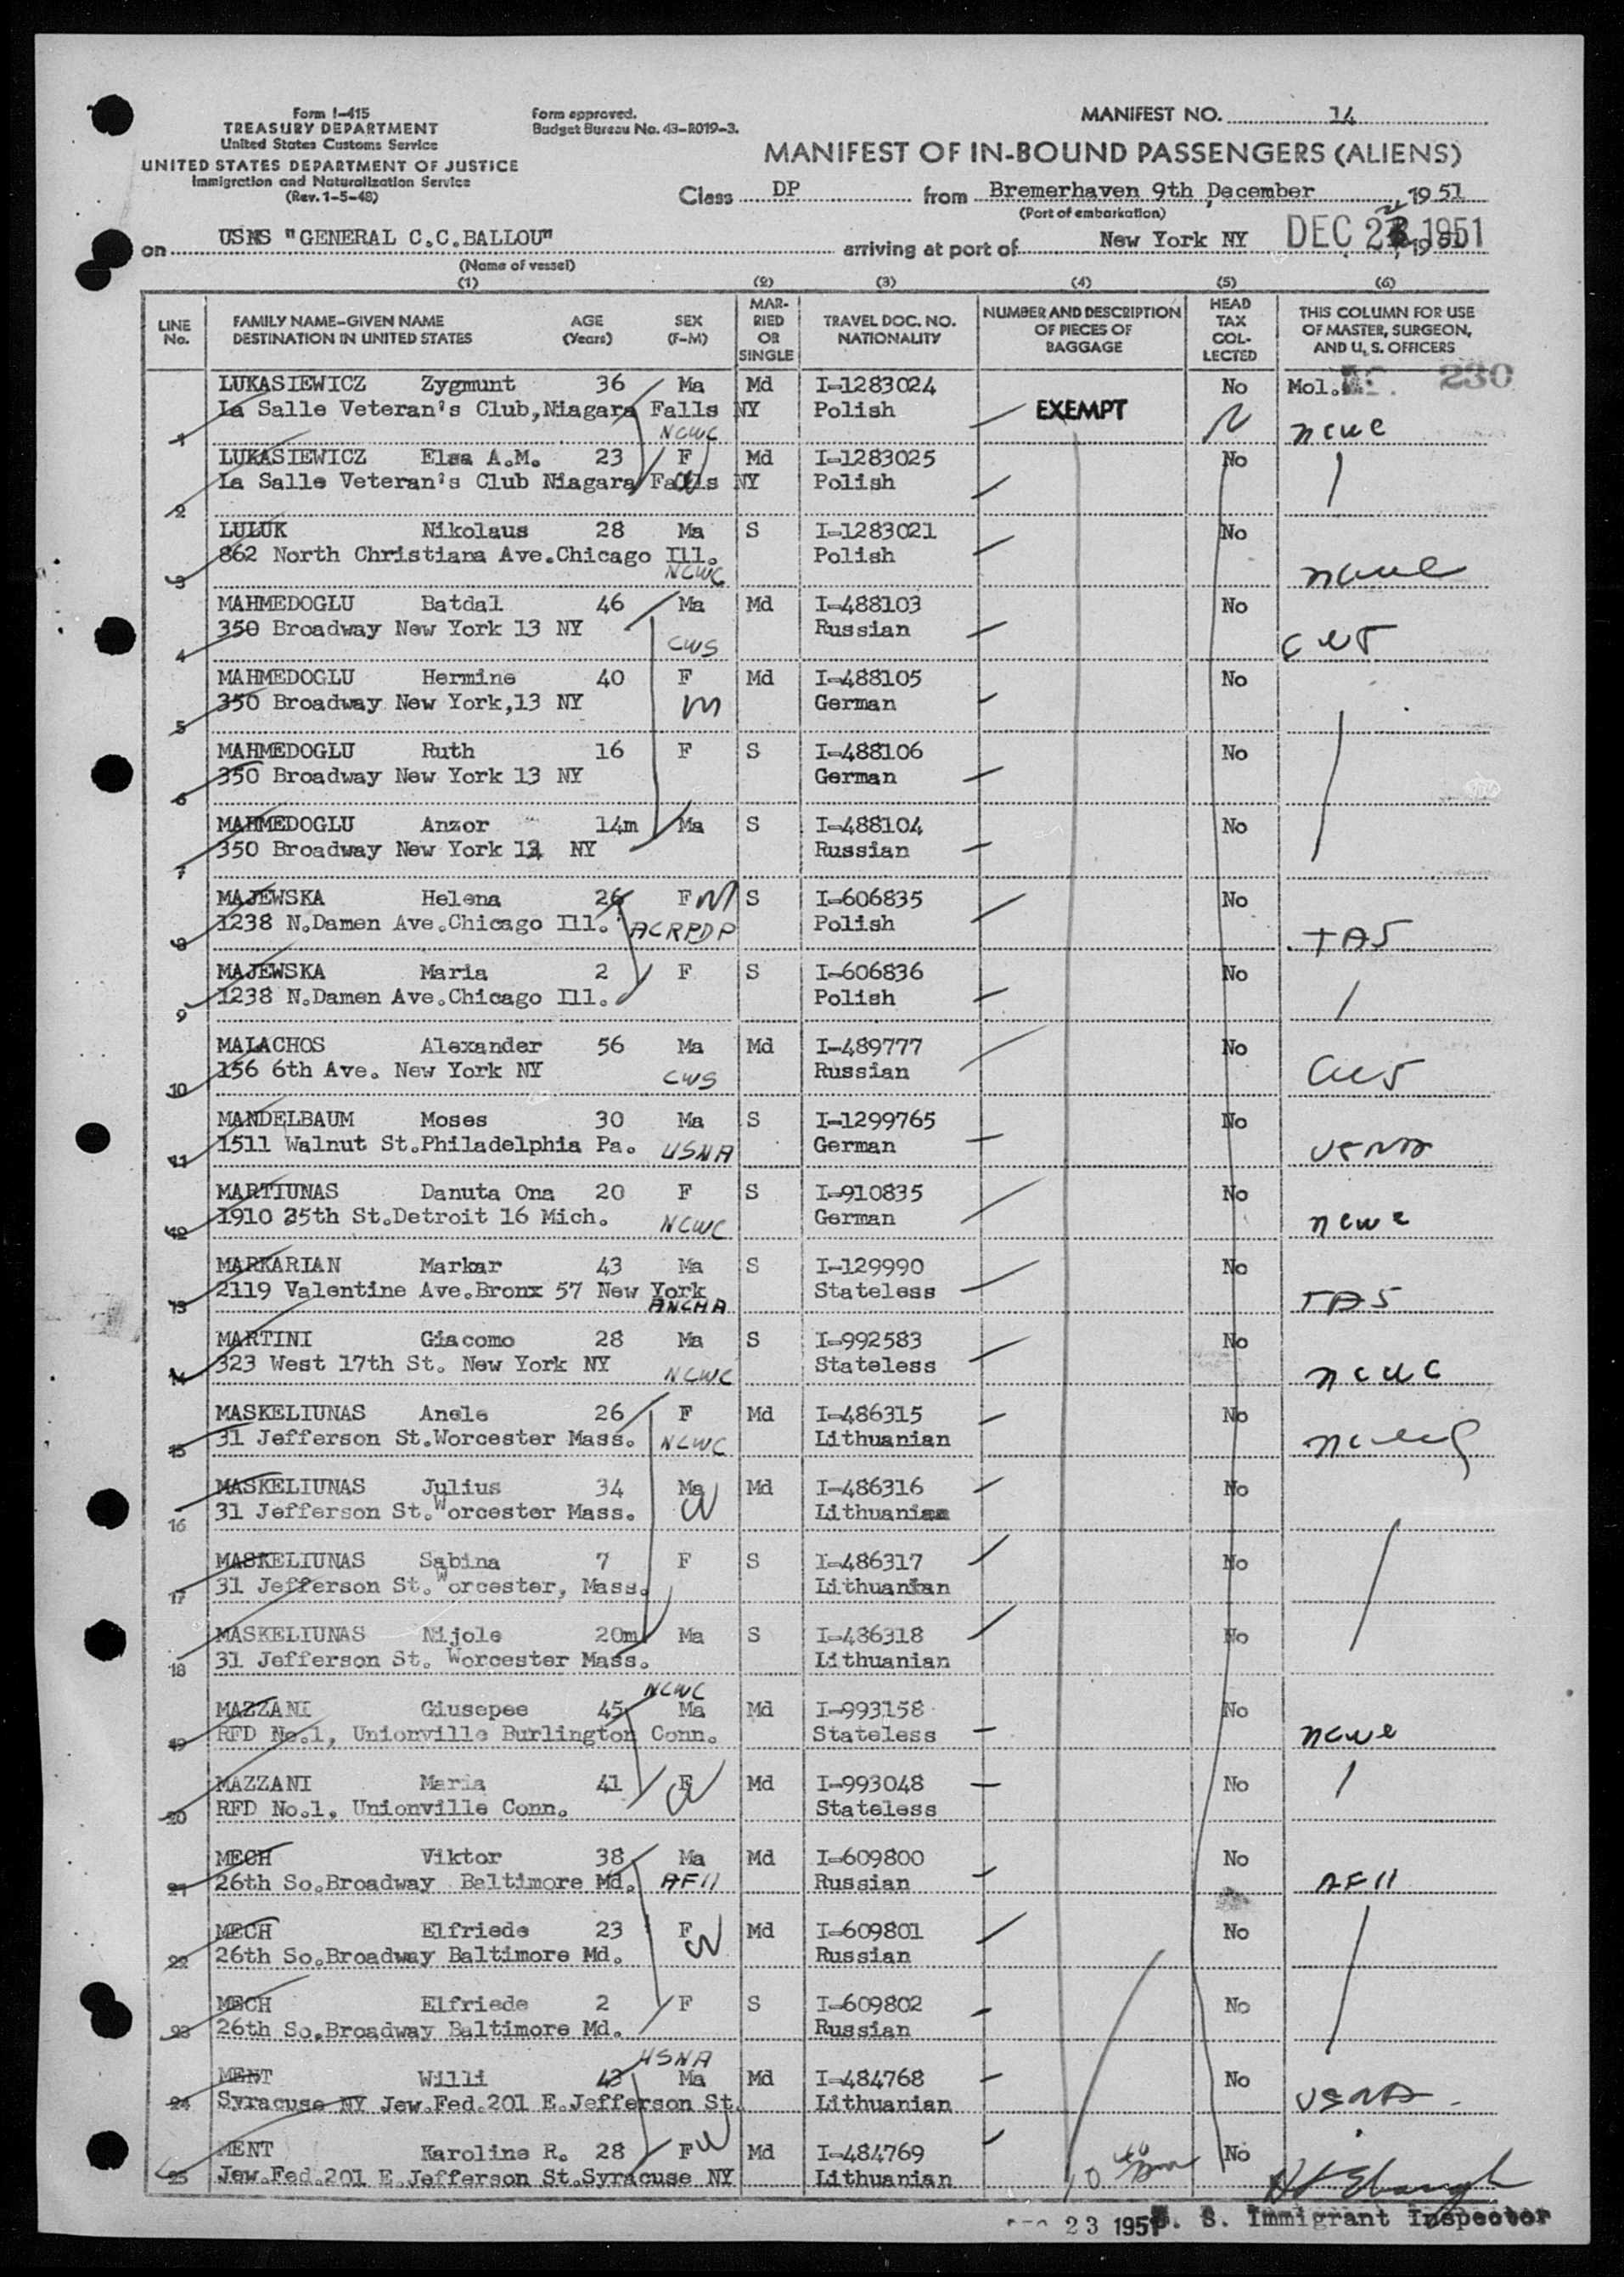 Form I-415
TREASURY DEPARTMENT
United States Customs Service
UNITED STATES DEPARTMENT OF JUSTICE
Immigration and Naturalization Service
(Rev. 1-5-48)
Form approved.
Budget Bureau No. 43-R019-3.
MANIFEST NO. 14
MANIFEST OF IN-BOUND PASSENGERS (ALIENS)
Class DP from Bremerhaven 9th, December 1951
(Port of embarkation)
on USNS "GENERAL C.C.BALLOU" arriving at port of New York NY DEC 1951
(Name of vessel)
(1) (2) (3) (4) (5) (6)
LINE No. FAMILY NAME-GIVEN NAME DESTINATION IN UNITED STATES AGE (Years) SEX (F-M) MARRIED OR SINGLE TRAVEL DOC. NO. NATIONALITY NUMBER AND DESCRIPTION OF PIECES OF BAGGAGE HEAD TAX COLLECTED THIS COLUMN FOR USE OF MASTER, SURGEON, AND U. S. OFFICERS
LUKASIEWICZ Zygmunt 36 Ma Md I-1283024 No Mol. 230
La Salle Veteran's Club,Niagara Falls NY Polish EXEMPT
1 NCWC ncwc
LUKASIEWICZ Elsa A.M. 23 F Md I-1283025 No
La Salle Veteran's Club Niagara Falls NY Polish
2
LULUK Nikolaus 28 Ma S I-1283021 No
862 North Christiana Ave.Chicago Ill. Polish
3 NCWC ncwc
MAHMEDOGLU Batdal 46 Ma Md I-488103 No
350 Broadway New York 13 NY Russian
4 CWS CWS
MAHMEDOGLU Hermine 40 F Md I-488105 No
350 Broadway New York,13 NY German
5
MAHMEDOGLU Ruth 16 F S I-488106 No
350 Broadway New York 13 NY German
6
MAHMEDOGLU Anzor 14m Ma S I-488104 No
350 Broadway New York 13 NY Russian
7
MAJEWSKA Helena 26 F S I-606835 No
1238 N.Damen Ave.Chicago Ill. ACRPDP Polish
8 TAS
MAJEWSKA Maria 2 F S I-606836 No
1238 N.Damen Ave.Chicago Ill. Polish
9
MALACHOS Alexander 56 Ma Md I-489777 No
156 6th Ave. New York NY Russian
10 CWS CWS
MANDELBAUM Moses 30 Ma S I-1299765 No
1511 Walnut St.Philadelphia Pa. USNA German
11 USNA
MARTIUNAS Danuta Ona 20 F S I-910835 No
1910 25th St.Detroit 16 Mich. NCWC German
12 ncwc
MARKARIAN Markar 43 Ma S I-129990 No
2119 Valentine Ave.Bronx 57 New York Stateless
13 ANCHA TAS
MARTINI Giacomo 28 Ma S I-992583 No
323 West 17th St. New York NY Stateless
14 NCWC ncwc
MASKELIUNAS Anele 26 F Md I-486315 No
31 Jefferson St.Worcester Mass. NCWC Lithuanian
15 ncwc
MASKELIUNAS Julius 34 Ma Md I-486316 No
31 Jefferson St.Worcester Mass. Lithuanian
16
MASKELIUNAS Sabina 7 F S I-486317 No
31 Jefferson St.Worcester, Mass. Lithuanian
17
MASKELIUNAS Nijole 20m Ma S I-486318 No
31 Jefferson St. Worcester Mass. Lithuanian
18
NCWC
MAZZANI Giusepee 45 Ma Md I-993158 No
RFD No.1, Unionville Burlington Conn. Stateless
19 ncwc
MAZZANI Maria 41 F Md I-993048 No
RFD No.1, Unionville Conn. Stateless
20
MECH Viktor 38 Ma Md I-609800 No
26th So.Broadway Baltimore Md. AFII Russian
21 AFII
MECH Elfriede 23 F Md I-609801 No
26th So.Broadway Baltimore Md. Russian
22
MECH Elfriede 2 F S I-609802 No
26th So.Broadway Baltimore Md. Russian
23
USNA
MENT Willi 43 Ma Md I-484768 No
24 Syracuse NY Jew.Fed.201 E.Jefferson St. Lithuanian USNA
MENT Karoline R. 28 F Md I-484769 No
25 Jew.Fed.201 E.Jefferson St.Syracuse NY Lithuanian
23 1951 U. S. Immigrant Inspector